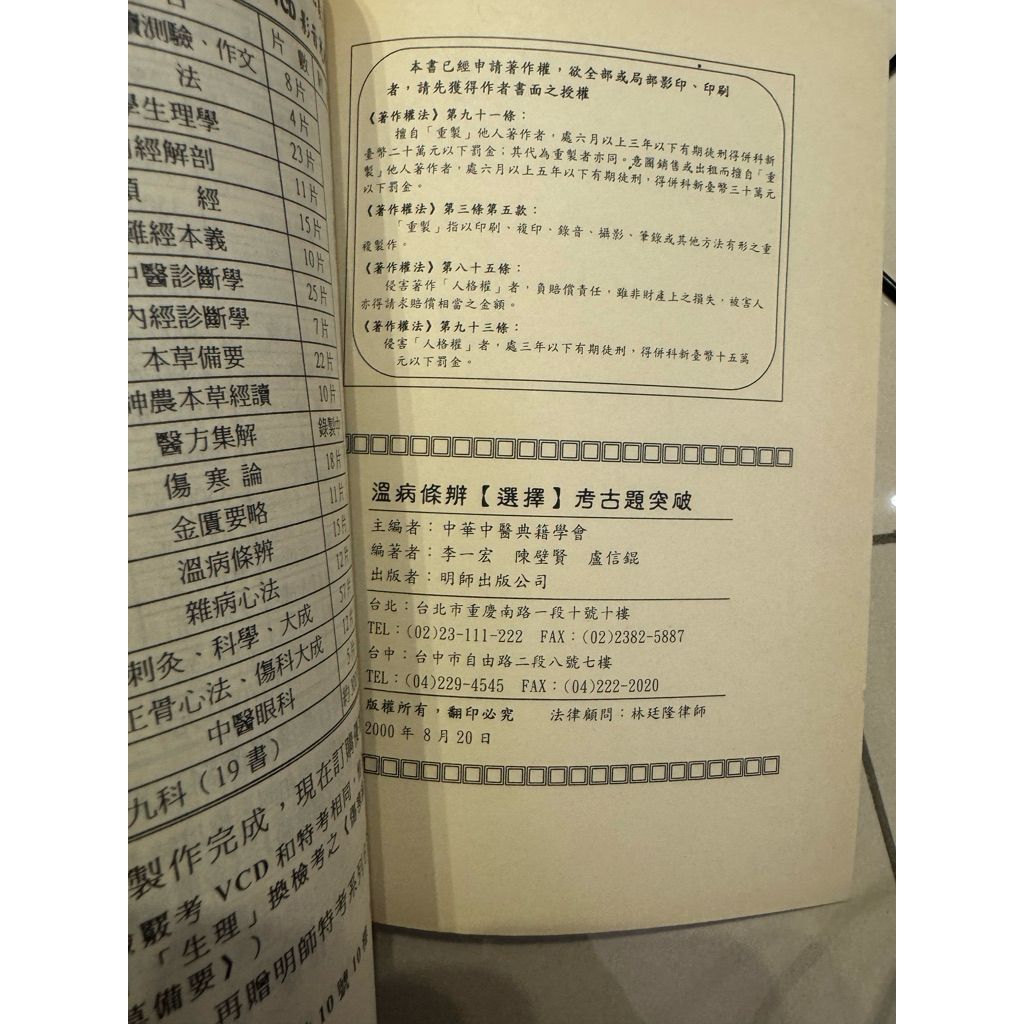 VCD
測驗、作文
片
法
8片
學生理學
4片
經解剖
23片
經
11片
難經本義
15片
中醫診斷學
10片
內經診斷學
25片
本草備要
7片
神農本草經讀
22片
醫方集解
10片
傷寒論
錄製中
金匱要略
18片
溫病條辨
11片
雜病心法
15片
刺灸、科學、大成
12片
正骨心法、傷科大成
57片
中醫眼科
12片
九科（19書）
5片
製作完成，現在訂購
嚴考 VCD 和特考相同，
「生理」換檢考之《傷寒
草備要》）
再贈明師特考系列
10號10樓
本書已經申請著作權，欲全部或局部影印、印刷
者，請先獲得作者書面之授權
《著作權法》第九十一條：
擅自「重製」他人著作者，處六月以上三年以下有期徒刑得併科新
臺幣二十萬元以下罰金；其代為重製者亦同。意圖銷售或出租而擅自「重
製」他人著作者，處六月以上五年以下有期徒刑，得併科新臺幣三十萬元
以下罰金。
《著作權法》第三條第五款：
「重製」指以印刷、複印、錄音、攝影、筆錄或其他方法有形之重
複製作。
《著作權法》第八十五條：
侵害著作「人格權」者，負賠償責任，雖非財產上之損失，被害人
亦得請求賠償相當之金額。
《著作權法》第九十三條：
侵害「人格權」者，處三年以下有期徒刑，得併科新臺幣十五萬
元以下罰金。
溫病條辨【選擇】考古題突破
主編者：中華中醫典籍學會
編著者：李一宏 陳壁賢 盧信錕
出版者：明師出版公司
台北：台北市重慶南路一段十號十樓
TEL：(02)23-111-222 FAX：(02)2382-5887
台中：台中市自由路二段八號七樓
TEL：(04)229-4545 FAX：(04)222-2020
版權所有，翻印必究 法律顧問：林廷隆律師
2000年8月20日